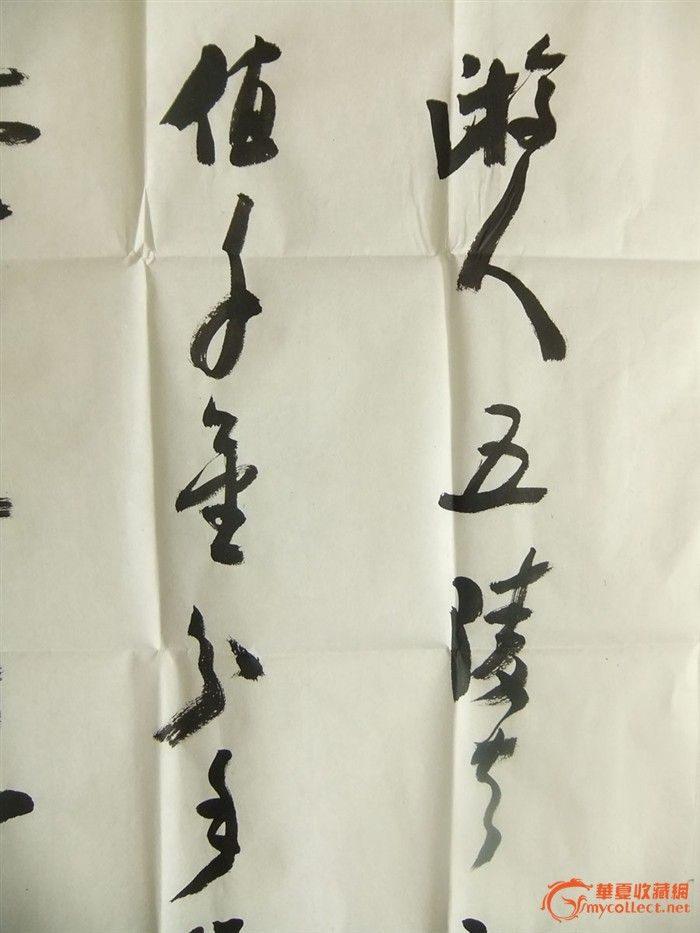 游人五陵去
值千金分手
華夏收藏網
mycollect.net